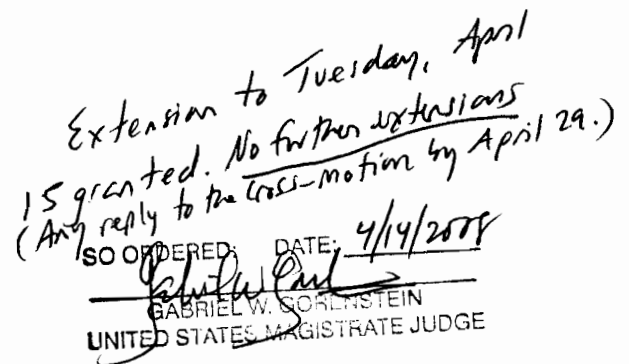 Extension to Tuesday, April
15 granted. No further extensions
(Any reply to the cross-motion by April 29.)
SO ORDERED: DATE: 4/14/2008
GABRIEL W. GORENSTEIN
UNITED STATES MAGISTRATE JUDGE